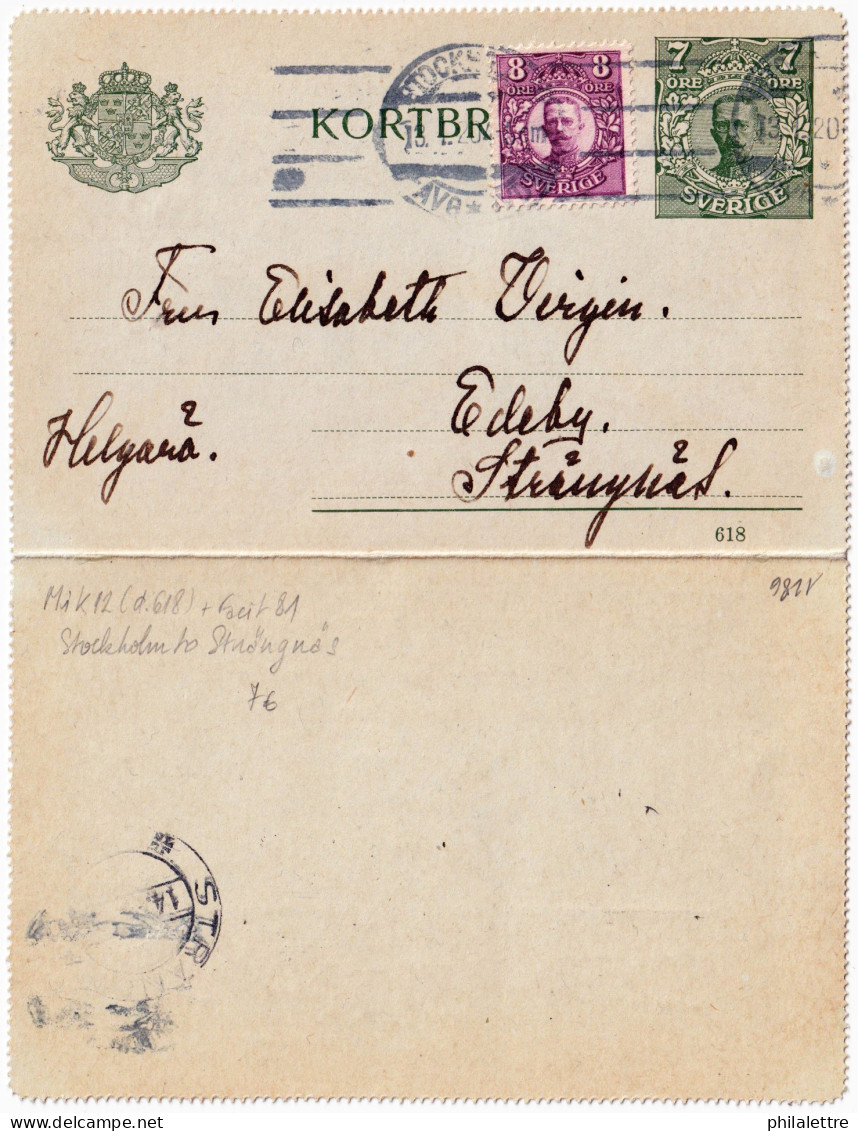 8 8
ÖRE ÖRE
SVERIGE
7 7
ÖRE ÖRE
SVERIGE
KORTBR
STOCK
AVG
Fru Elisabeth Virgin.
Edeby.
Helgarö.
Strängnäs.
618
MiK12 (d.618) + Facit 81
Stockholm to Strängnäs
7€
981V
STR
14
philalettre